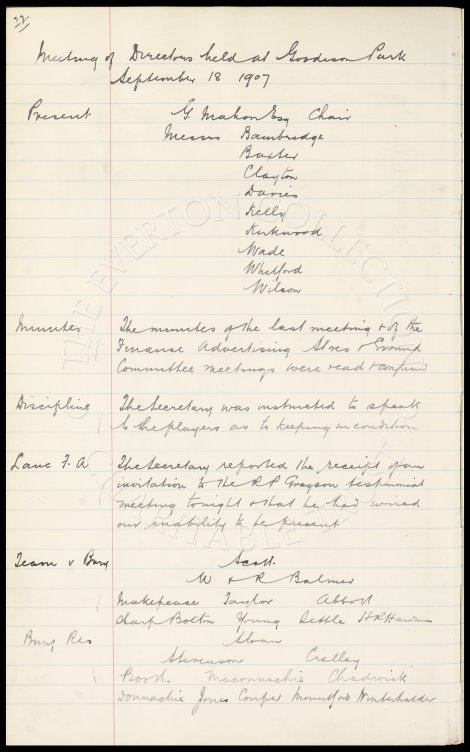 22
Meeting of Directors held at Goodison Park
September 18 1907
Present G. Mahon Esq Chair
Messrs Bainbridge
Baxter
Clayton
Davies
Kelly
Kirkwood
Wade
Whitford
Wilson
Minutes The minutes of the last meeting & of the
Finance Advertising Stores & Ground
Committee meetings were read & confirmd
Discipline The Secretary was instructed to speak
to the players as to keeping in condition
Lanc F. A The Secretary reported the receipt of an
invitation to the R P Gregson testimonial
meeting tonight & that he had wired
our inability to be present
Team v Bury Scott.
W & R Balmer
Makepeace Taylor Abbott
Sharp Bolton Young Settle H P Hardman
Bury Res Sloan
Stevenson Crelley
Booth Maconnachie Chadwick
Donnachie Jones Couper Mountford Winterhalder
THE EVERTON COLLECTION
CHARITABLE TRUST